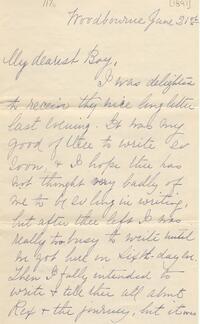 [1891]
Woodbourne June 21st
My dearest Boy,
I was delighted
to receive thy nice long letter
last evening. It was very
good of thee to write so
soon, & I hope thee has
not thought very badly of
me to be so long in writing,
but after thee left I was
really too busy to write until
we got here on Sixth-day
Then I fully intended to
write & tell thee all about
Rex & the journey, but it was